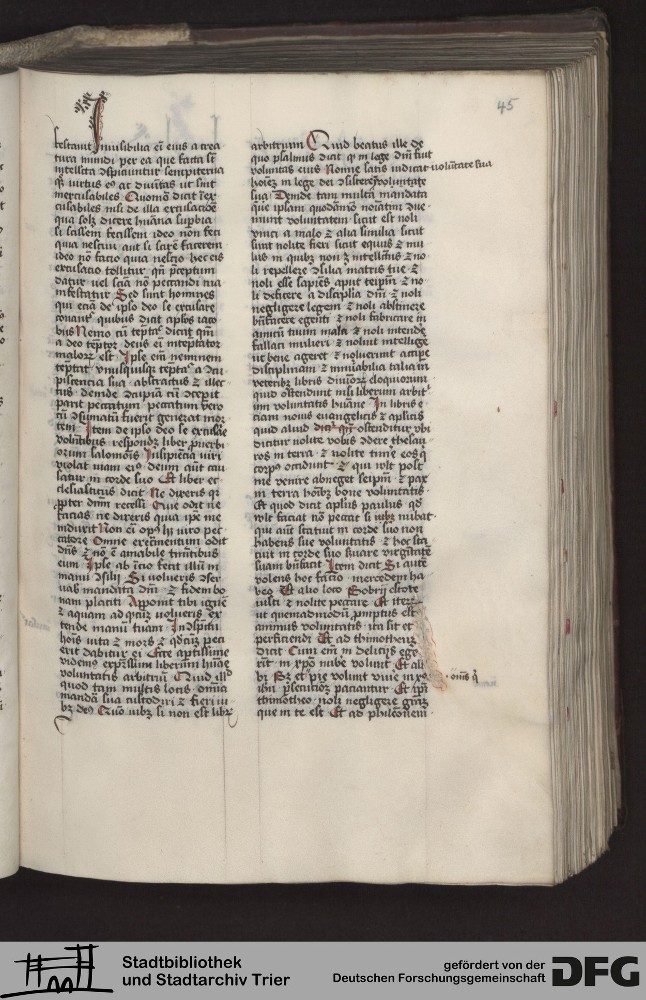 45
testantur Inuisibilia em̄ eius a crea
tura mundi per ea que facta st̄
intellecta ɔspiciuntur sempiterna
qꝫ uirtus eꝰ ac diuītas ut sint
inexcusabiles Quomō dicit iēx
cusabiles nisi de illa excusacōe
qua solꝫ dicere hūana suꝑbia
si scissem fecissem ideo nōn feci
quia nesciui aut si scirē facerem
ideo nō facio quia nescio hec eis
excusacio tollitur qn̄ p̄ceptum
datur uel scīa nō peccandi ma
nifestatur Sed sunt homines
qui eciā de ipso deo se excusare
conant̄ quibus dicit apl̄os iaco
bus Nemo cū tēptat̄ dicat qm̄
a deo tēptor deus em̄ intēptator
maloꝝ est Ipse em̄ neminem
tēptat vnusquisqꝫ tēptat̄ a ɔcu
piscencia sua abstractus ⁊ illec
tus deinde ɔcupiā cū ɔcepit
parit peccatum peccatum vero
cū ɔsumatū fuerit generat mor
tem Item de ipso deo se excusāe
volentibus respondꝫ liber ꝓuerbi
orum salomōis Insipiencia uiri
violat uiam eiꝰ deum aūt cau
satur in corde suo Et liber ec
clesiasticus dicit Ne dixeris qꝛ
ꝓpter dnm̄ recessi Que odit ne
facias ne dixeris quia ip̄e me
induxit Non em̄ opꝰ hꝫ uiro pec
catore Omne execmentum odit
dn̄s ⁊ nō ē amabile timētibus
eum Ipse ab īcio fecit illū in
manu ɔsilij Si uolueris ɔser
uab mandata dnī ⁊ fidem bo
nam placiti Apponit tibi ignē
⁊ aquam ad qd̄cūqꝫ uolueris ex
tende manū tuam In ɔspectu
hoīs uita ⁊ mors ⁊ qd̄cūqꝫ placu
erit dabitur ei Ecce aptissime
videmꝰ exp̄ssum liberum hūāe
voluntatis arbitriū Quid illd̄
quod tam multis locis omīa
mandata sua custodiri ⁊ fieri iu
bꝫ deꝰ Quō iubꝫ si non est libꝝ
arbitrium Quid beatus ille de
quo psalmus dicit qꝛ in lege dnī fuit
voluntas eius Nonne satis indicat voluntate sua
hoīeꝫ in lege dei ɔsistere voluntate
sua Deinde tam multa mandata
que ipsam quodāmō noīatim ɔue
niunt voluntatem sicut est noli
vinci a malo ⁊ alia similia sicut
sunt nolite fieri sicut equus ⁊ mu
lus in quibꝫ non ē intellectus ⁊ no
li repellere ɔsilia matris tue ⁊
noli esse sapiēs aput teipm̄ ⁊ no
li deficere a disciplīa dnī ⁊ noli
negligere legem ⁊ noli abstinere
bn̄facere egenti ⁊ noli fabricare in
amicū tuum mala ⁊ noli intende
fallaci mulieri ⁊ noluit intellige
ut bene ageret ⁊ noluerunt accipe
disciplinam ⁊ innūabilia talia in
veteribꝫ libris diuinoꝝ eloquiorum
quid ostendunt nisi liberum arbitr
ium voluntatis hūane In libris e
ciam nouis euangelicis ⁊ aplicis
quid aliud dicꝛ qm̄ ostenditur vbi
dicitur nolite vobis ɔdere thesau
ros in terra ⁊ nolite timē eos q
corpꝰ occidunt ⁊ qui wlt post
me venire abneget seipm̄ ⁊ pax
in terra hoībꝫ bone voluntatis
Et quod dicit aplūs paulus qd̄
wlt faciat nō peccat si nubꝫ nubat
qui aūt statuit in corde suo non
habens sue voluntatis ⁊ hoc sta
tuit in corde suo ẜuare virgītatē
suam bn̄facit Item dicit Si autē
volens hoc facio mercedem ha
beo Et alio loco Sobrij estote
iusti ⁊ nolite peccare Et iteꝝ
ut quemadmodū ꝓmptus est
animus voluntatis ita sit et
perficiendi Et ad thimotheuꝫ
dicit Cum em̄ in delicijs ege
rīt in xpō nube volunt Et ali
bi Sꝫ et pie volunt viue in xpō · omēs q̄
ihū ꝑsecucioēꝫ paciantur Et ip̄i
thimotheo noli negligere grāꝫ
que in te est Et ad philemonem
Stadtbibliothek
und Stadtarchiv Trier
gefördert von der
Deutschen Forschungsgemeinschaft
DFG